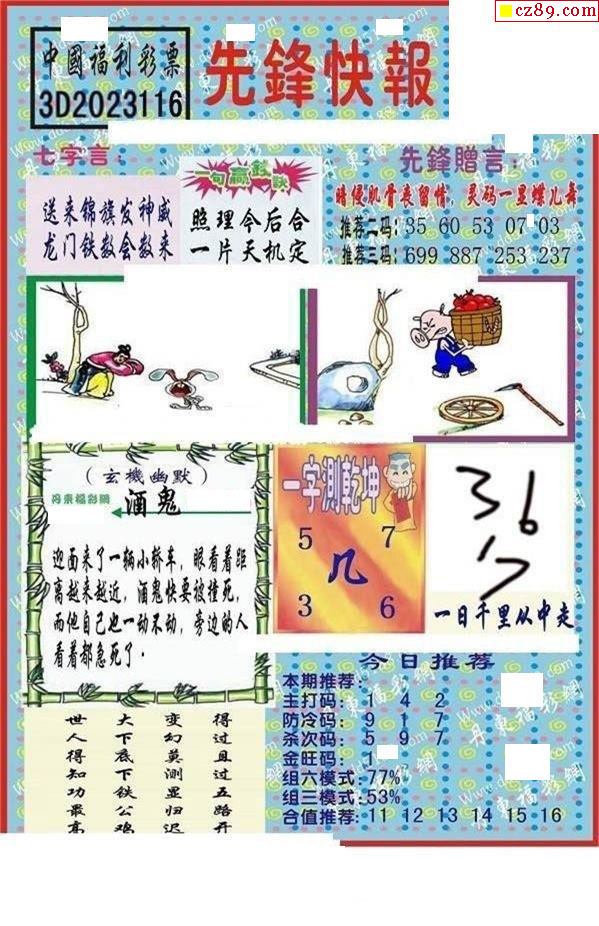 cz89.com
中國福利彩票
3D2023116
先鋒快報
七字言：
送来锦旗发神威
龙门铁数会数来
一句赢錢訣
照理今后合
一片天机定
先鋒贈言：
暗侵肌骨丧留情，灵码一显蝶儿舞
推荐二码：35 60 53 07 03
推荐三码：699 887 253 237
（玄機幽默）
丹東福彩網
酒鬼
迎面来了一辆小轿车，眼看着距
离越来越近，酒鬼快要被撞死，
而他自己也一动不动，旁边的人
看着都急死了。
一字測乾坤
5 7
几
3 6
36
17
一日千里从中走
今日推荐
本期推荐：
主打码：1 4 2
防冷码：9 1 7
杀次码：5 9 7
金旺码：1
组六模式：77%
组三模式：53%
合值推荐：11 12 13 14 15 16
世人得知功最高
大下底下铁公鸡
变幻莫测显归迟
得过且过五路开